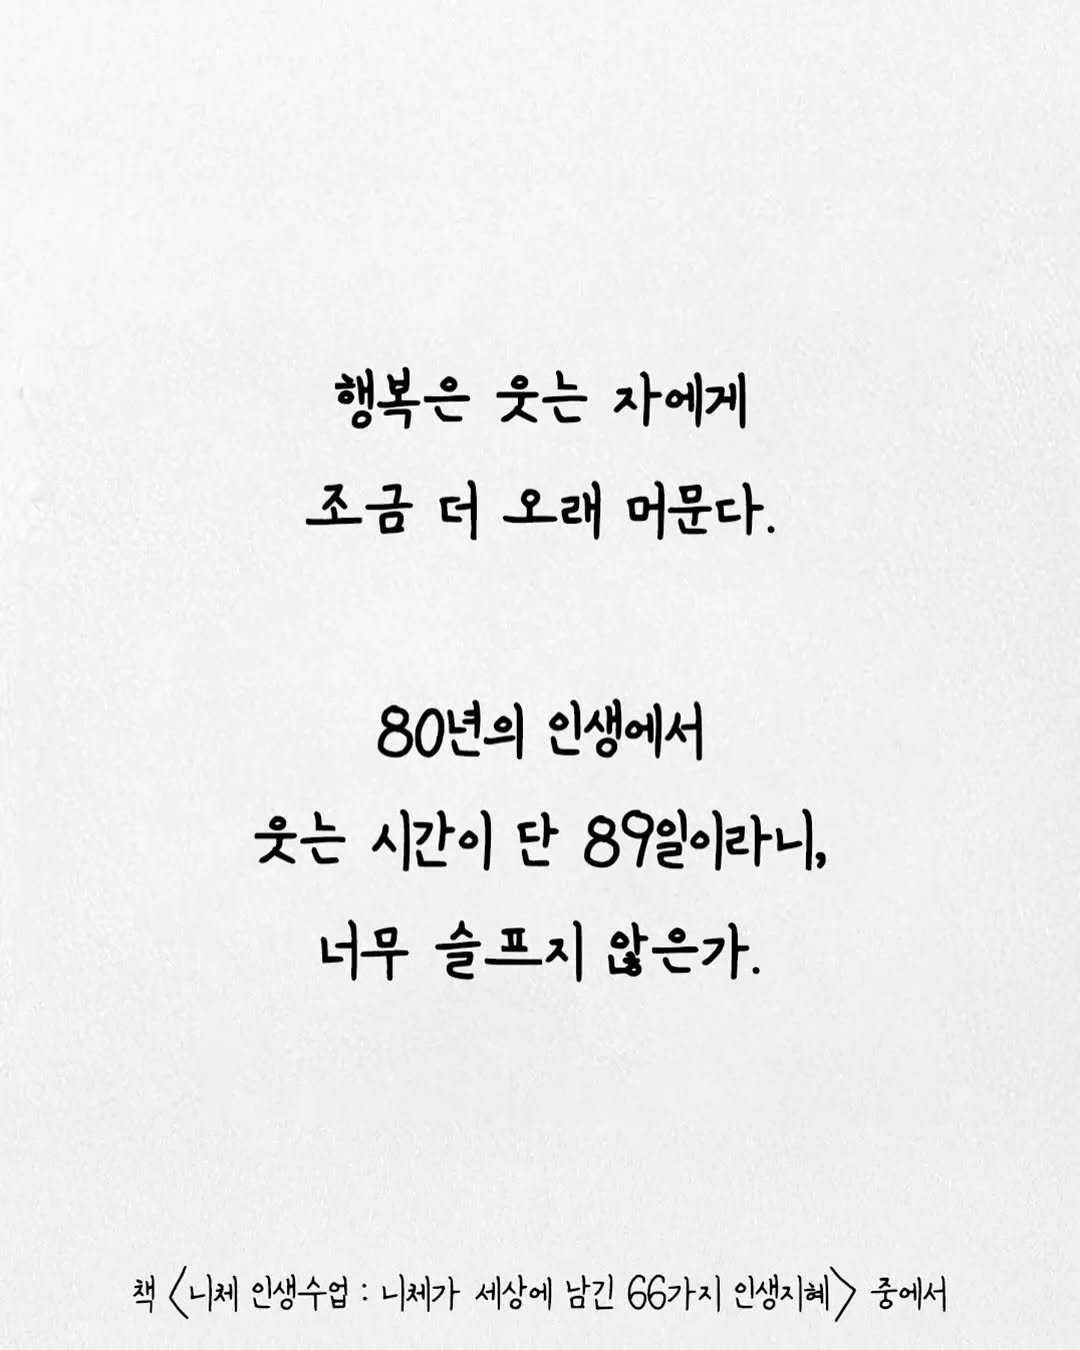 행복은 웃는 자에게
조금 더 오래 머문다.
80년의 인생에서
웃는 시간이 단 89일이라니,
너무 슬프지 않은가.
책 〈니체 인생수업 : 니체가 세상에 남긴 66가지 인생지혜〉 중에서